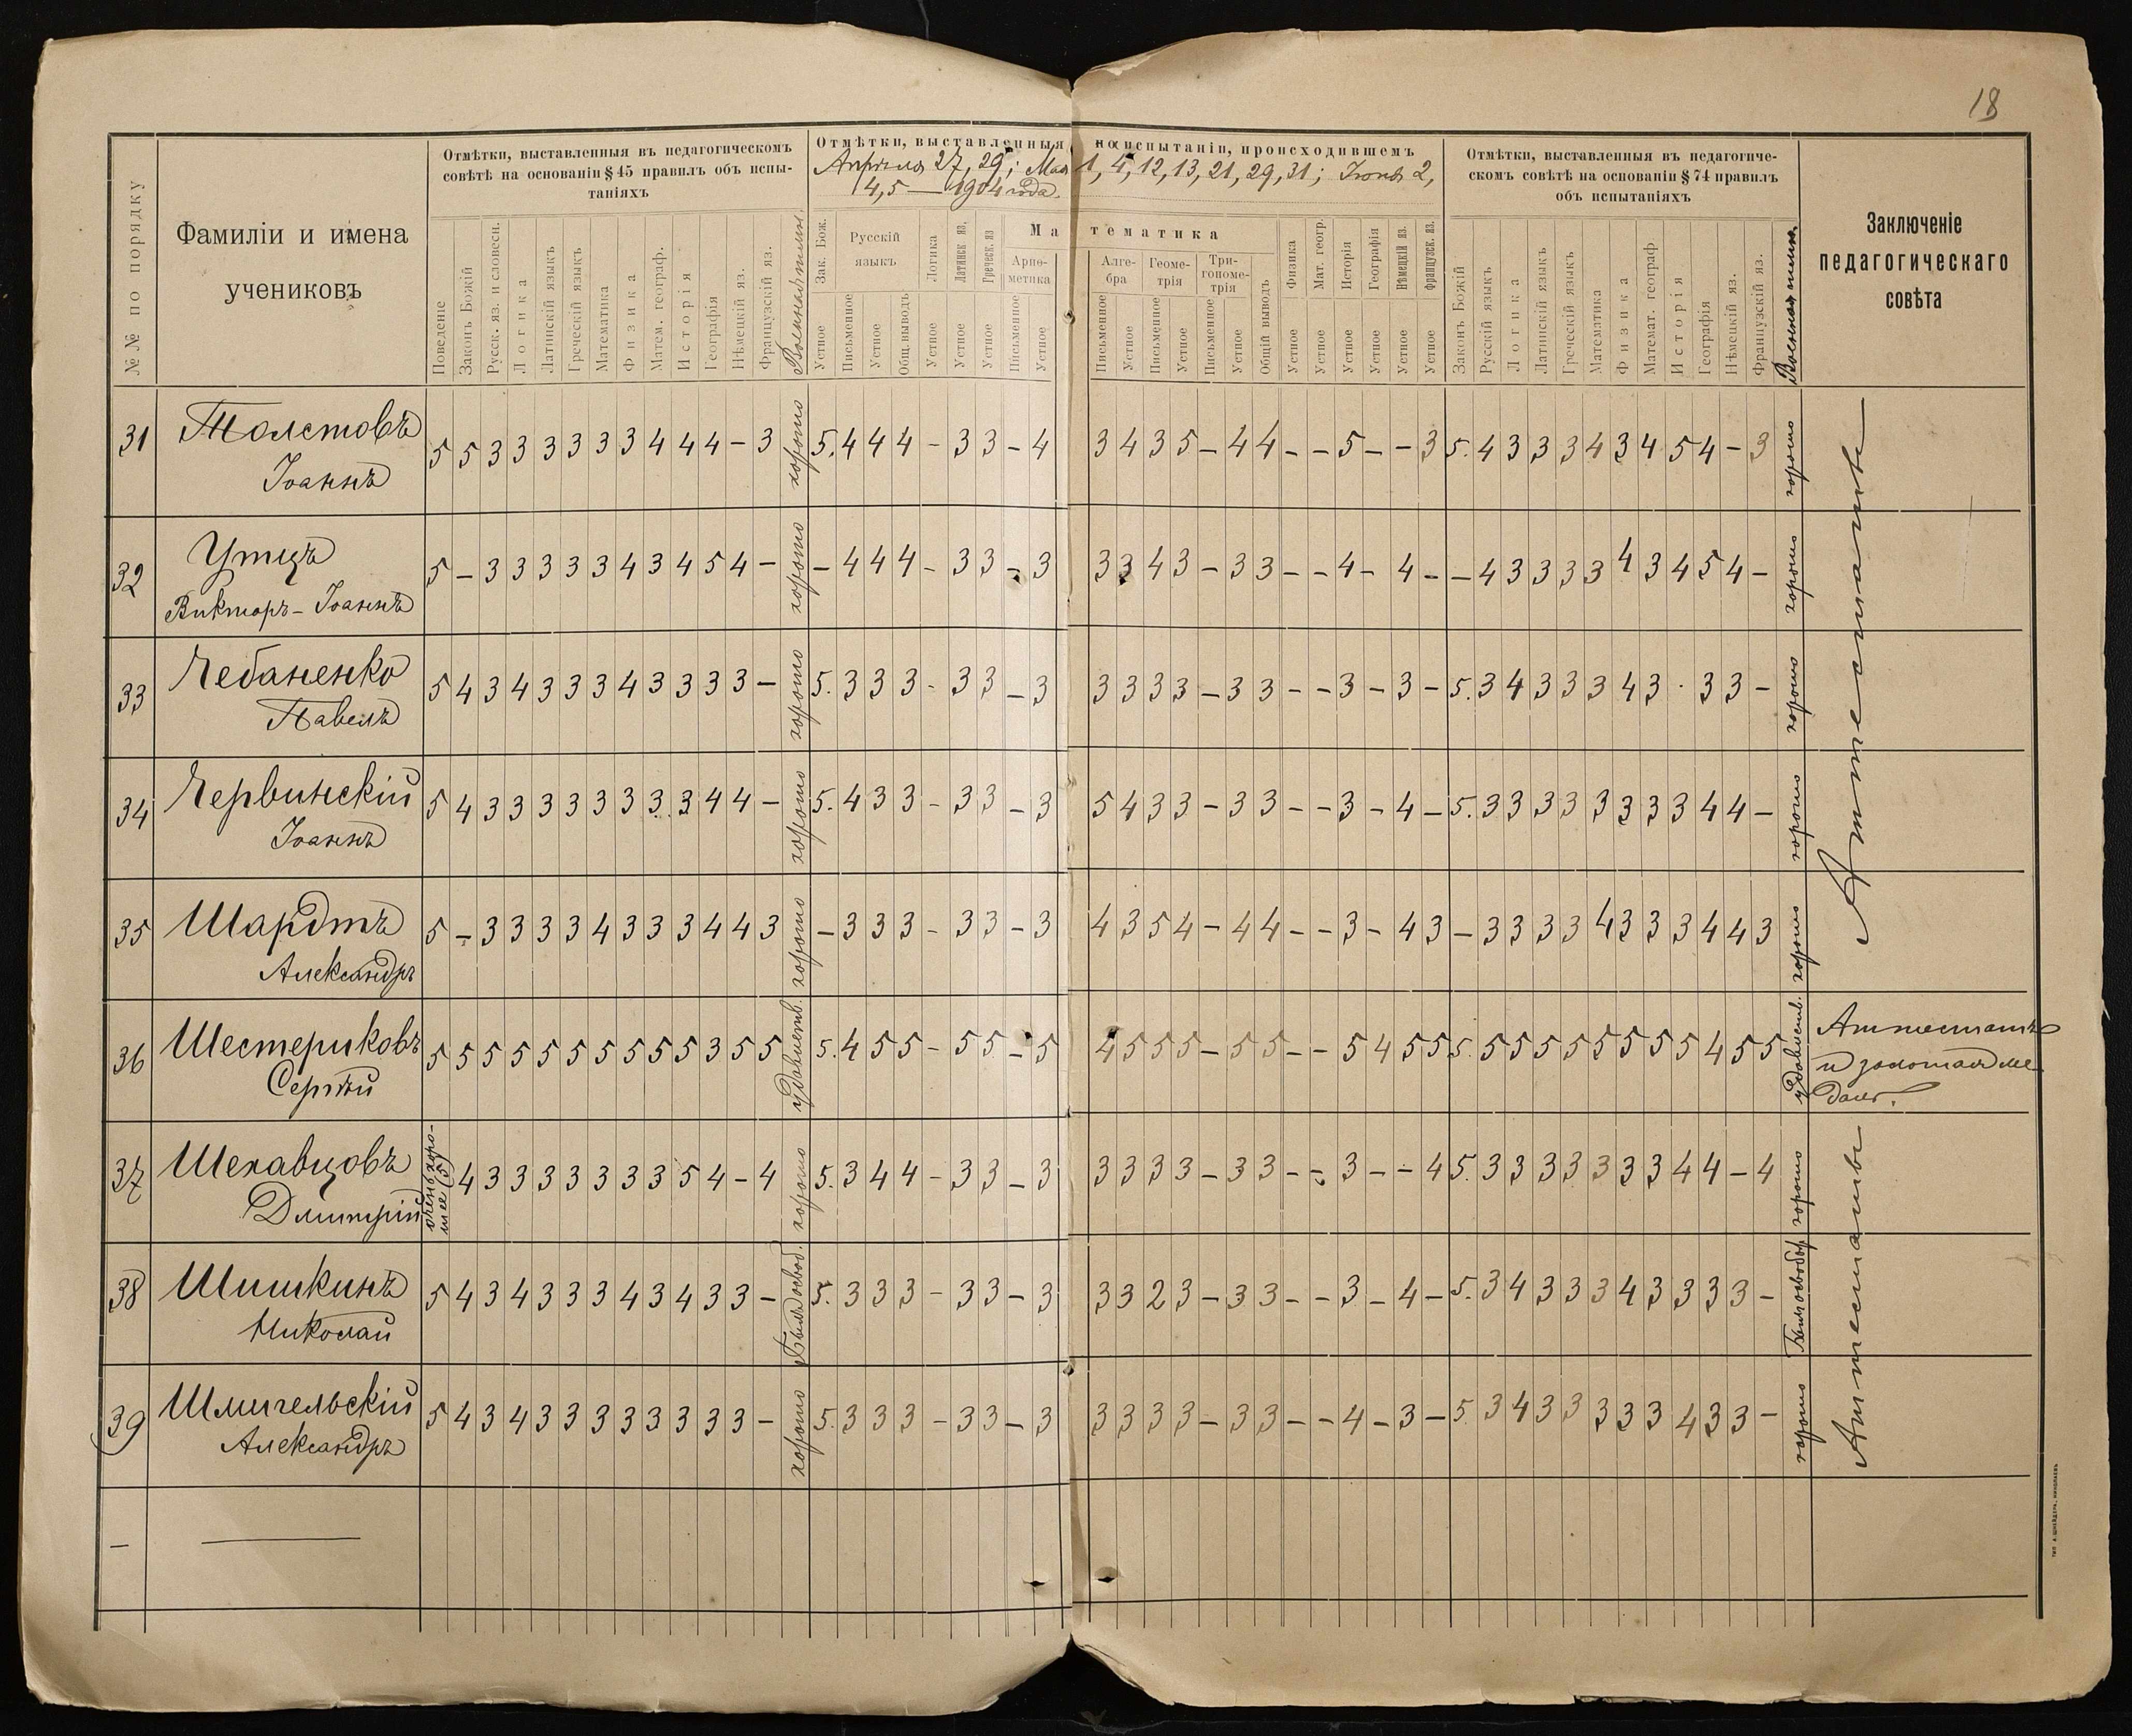 18
№№ ПО ПОРЯДКУ
Фамиліи и имена
учениковъ
Отмѣтки, выставленныя въ педагогическомъ
совѣтѣ на основаніи § 45 правилъ объ испы-
таніяхъ
Поведеніе
Законъ Божій
Русск. яз. и словесн.
Логика
Латинскій языкъ
Греческій языкъ
Математика
Физика
Матем. географ.
Исторія
Географія
Нѣмецкій яз.
Французскій яз.
Отмѣтки, выставленныя на испытаніи, происходившемъ
Апрѣля 27, 29; Мая 1, 4, 12, 13, 21, 29, 31; Іюня 2,
4, 5 — 1904 года.
Зак. Бож.
Устное
Русскій
языкъ
Письменное
Устное
Общ. выводъ
Логика
Устное
Латинск яз.
Устное
Греческ. яз
Устное
Математика
Арив-
метика
Письменное
Устное
Алге-
бра
Письменное
Устное
Геоме-
трія
Письменное
Устное
Три-
гономе-
трія
Письменное
Устное
Общій выводъ
Физика
Устное
Мат. геогр.
Устное
Исторія
Устное
Географія
Устное
Нѣмецкій яз.
Устное
Французск. яз.
Устное
Отмѣтки, выставленныя въ педагогиче-
скомъ совѣтѣ на основаніи § 74 правилъ
объ испытаніяхъ
Законъ Божій
Русскій языкъ
Логика
Латинскій языкъ
Греческій языкъ
Математика
Физика
Математ. географ
Исторія
Географія
Нѣмецкій яз.
Французскій яз.
Заключеніе
педагогическаго
совѣта
31 Толстовъ
Іоаннъ
5 5 3 3 3 3 3 3 4 4 4 – 3 хорошо 5. 4 4 4 – 3 3 – 4 3 4 3 5 – 4 4 – – 5 – – 3 5. 4 3 3 3 4 3 4 5 4 – 3 хорошо
32 Утцъ
Викторъ – Іоаннъ
5 – 3 3 3 3 3 4 3 4 5 4 – хорошо – 4 4 4 – 3 3 – 3 3 3 4 3 – 3 3 – – 4 – 4 – – 4 3 3 3 3 4 3 4 5 4 – хорошо
33 Чебаненко
Павелъ
5 4 3 4 3 3 3 4 3 3 3 3 – хорошо 5. 3 3 3 – 3 3 – 3 3 3 3 3 – 3 3 – – 3 – 3 – 5. 3 4 3 3 3 4 3 · 3 3 – хорошо
34 Червинскій
Іоаннъ
5 4 3 3 3 3 3 3 3 3 4 4 – хорошо 5. 4 3 3 – 3 3 – 3 5 4 3 3 – 3 3 – – 3 – 4 – 5. 3 3 3 3 3 3 3 3 4 4 – хорошо
35 Шардтъ
Александръ
5 – 3 3 3 3 4 3 3 3 4 4 3 хорошо – 3 3 3 – 3 3 – 3 4 3 5 4 – 4 4 – – 3 – 4 3 – 3 3 3 3 4 3 3 3 4 4 3 хорошо
Аттестатъ
36 Шестериковъ
Сергѣй
5 5 5 5 5 5 5 5 5 5 3 5 5 удовлетв. 5. 4 5 5 – 5 5 – 5 4 5 5 5 – 5 5 – – 5 4 5 5 5. 5 5 5 5 5 5 5 5 4 5 5 удовлетв.
Аттестатъ
и золотая ме-
даль.
37 Шелавцовъ
Дмитрій
очень хоро-
шее (5) 4 3 3 3 3 3 3 3 5 4 – 4 хорошо 5. 3 4 4 – 3 3 – 3 3 3 3 3 – 3 3 – – 3 – – 4 5. 3 3 3 3 3 3 3 4 4 – 4 хорошо
38 Шишкинъ
Николай
5 4 3 4 3 3 3 4 3 4 3 3 – Былъ освоб. 5. 3 3 3 – 3 3 – 3 3 3 2 3 – 3 3 – – 3 – 4 – 5. 3 4 3 3 3 4 3 3 3 3 – Былъ освобод
39 Шмигельскій
Александръ
5 4 3 4 3 3 3 3 3 3 3 3 – хорошо 5. 3 3 3 – 3 3 – 3 3 3 3 3 – 3 3 – – 4 – 3 – 5. 3 4 3 3 3 3 3 4 3 3 – хорошо
Аттестатъ